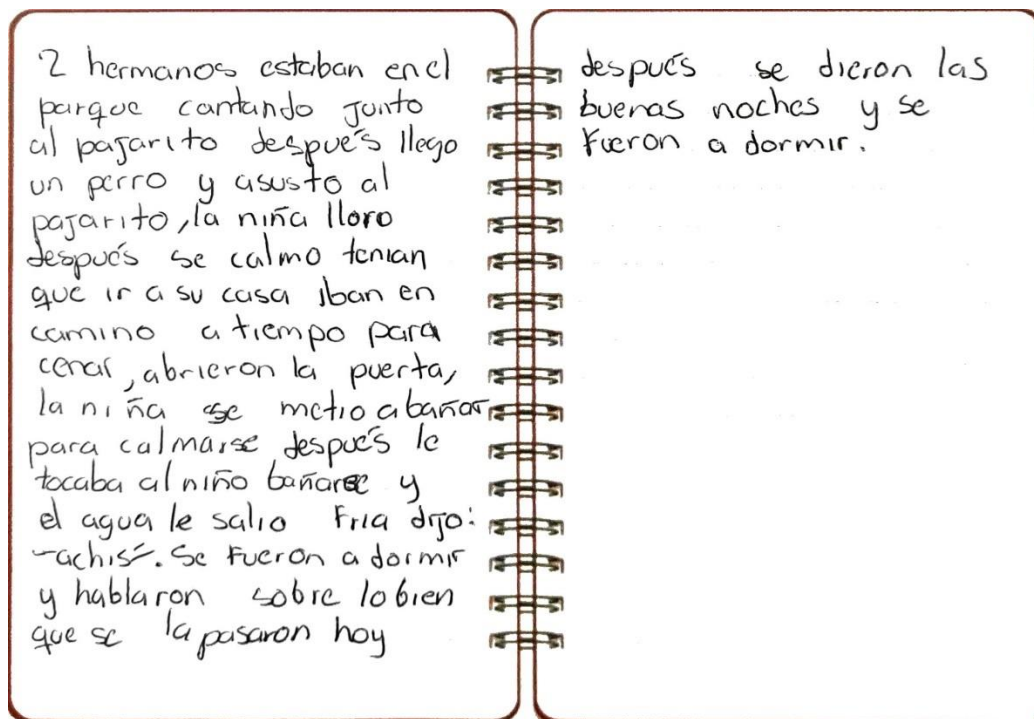 2 hermanos estaban en el
parque cantando junto
al pajarito después llego
un perro y asusto al
pajarito, la niña lloro
después se calmo tenian
que ir a su casa iban en
camino a tiempo para
cenar, abrieron la puerta,
la niña se metio a bañar
para calmarse después le
tocaba al niño bañarse y
el agua le salio fria dijo:
-achis-. Se fueron a dormir
y hablaron sobre lo bien
que se la pasaron hoy
después se dieron las
buenas noches y se
fueron a dormir.